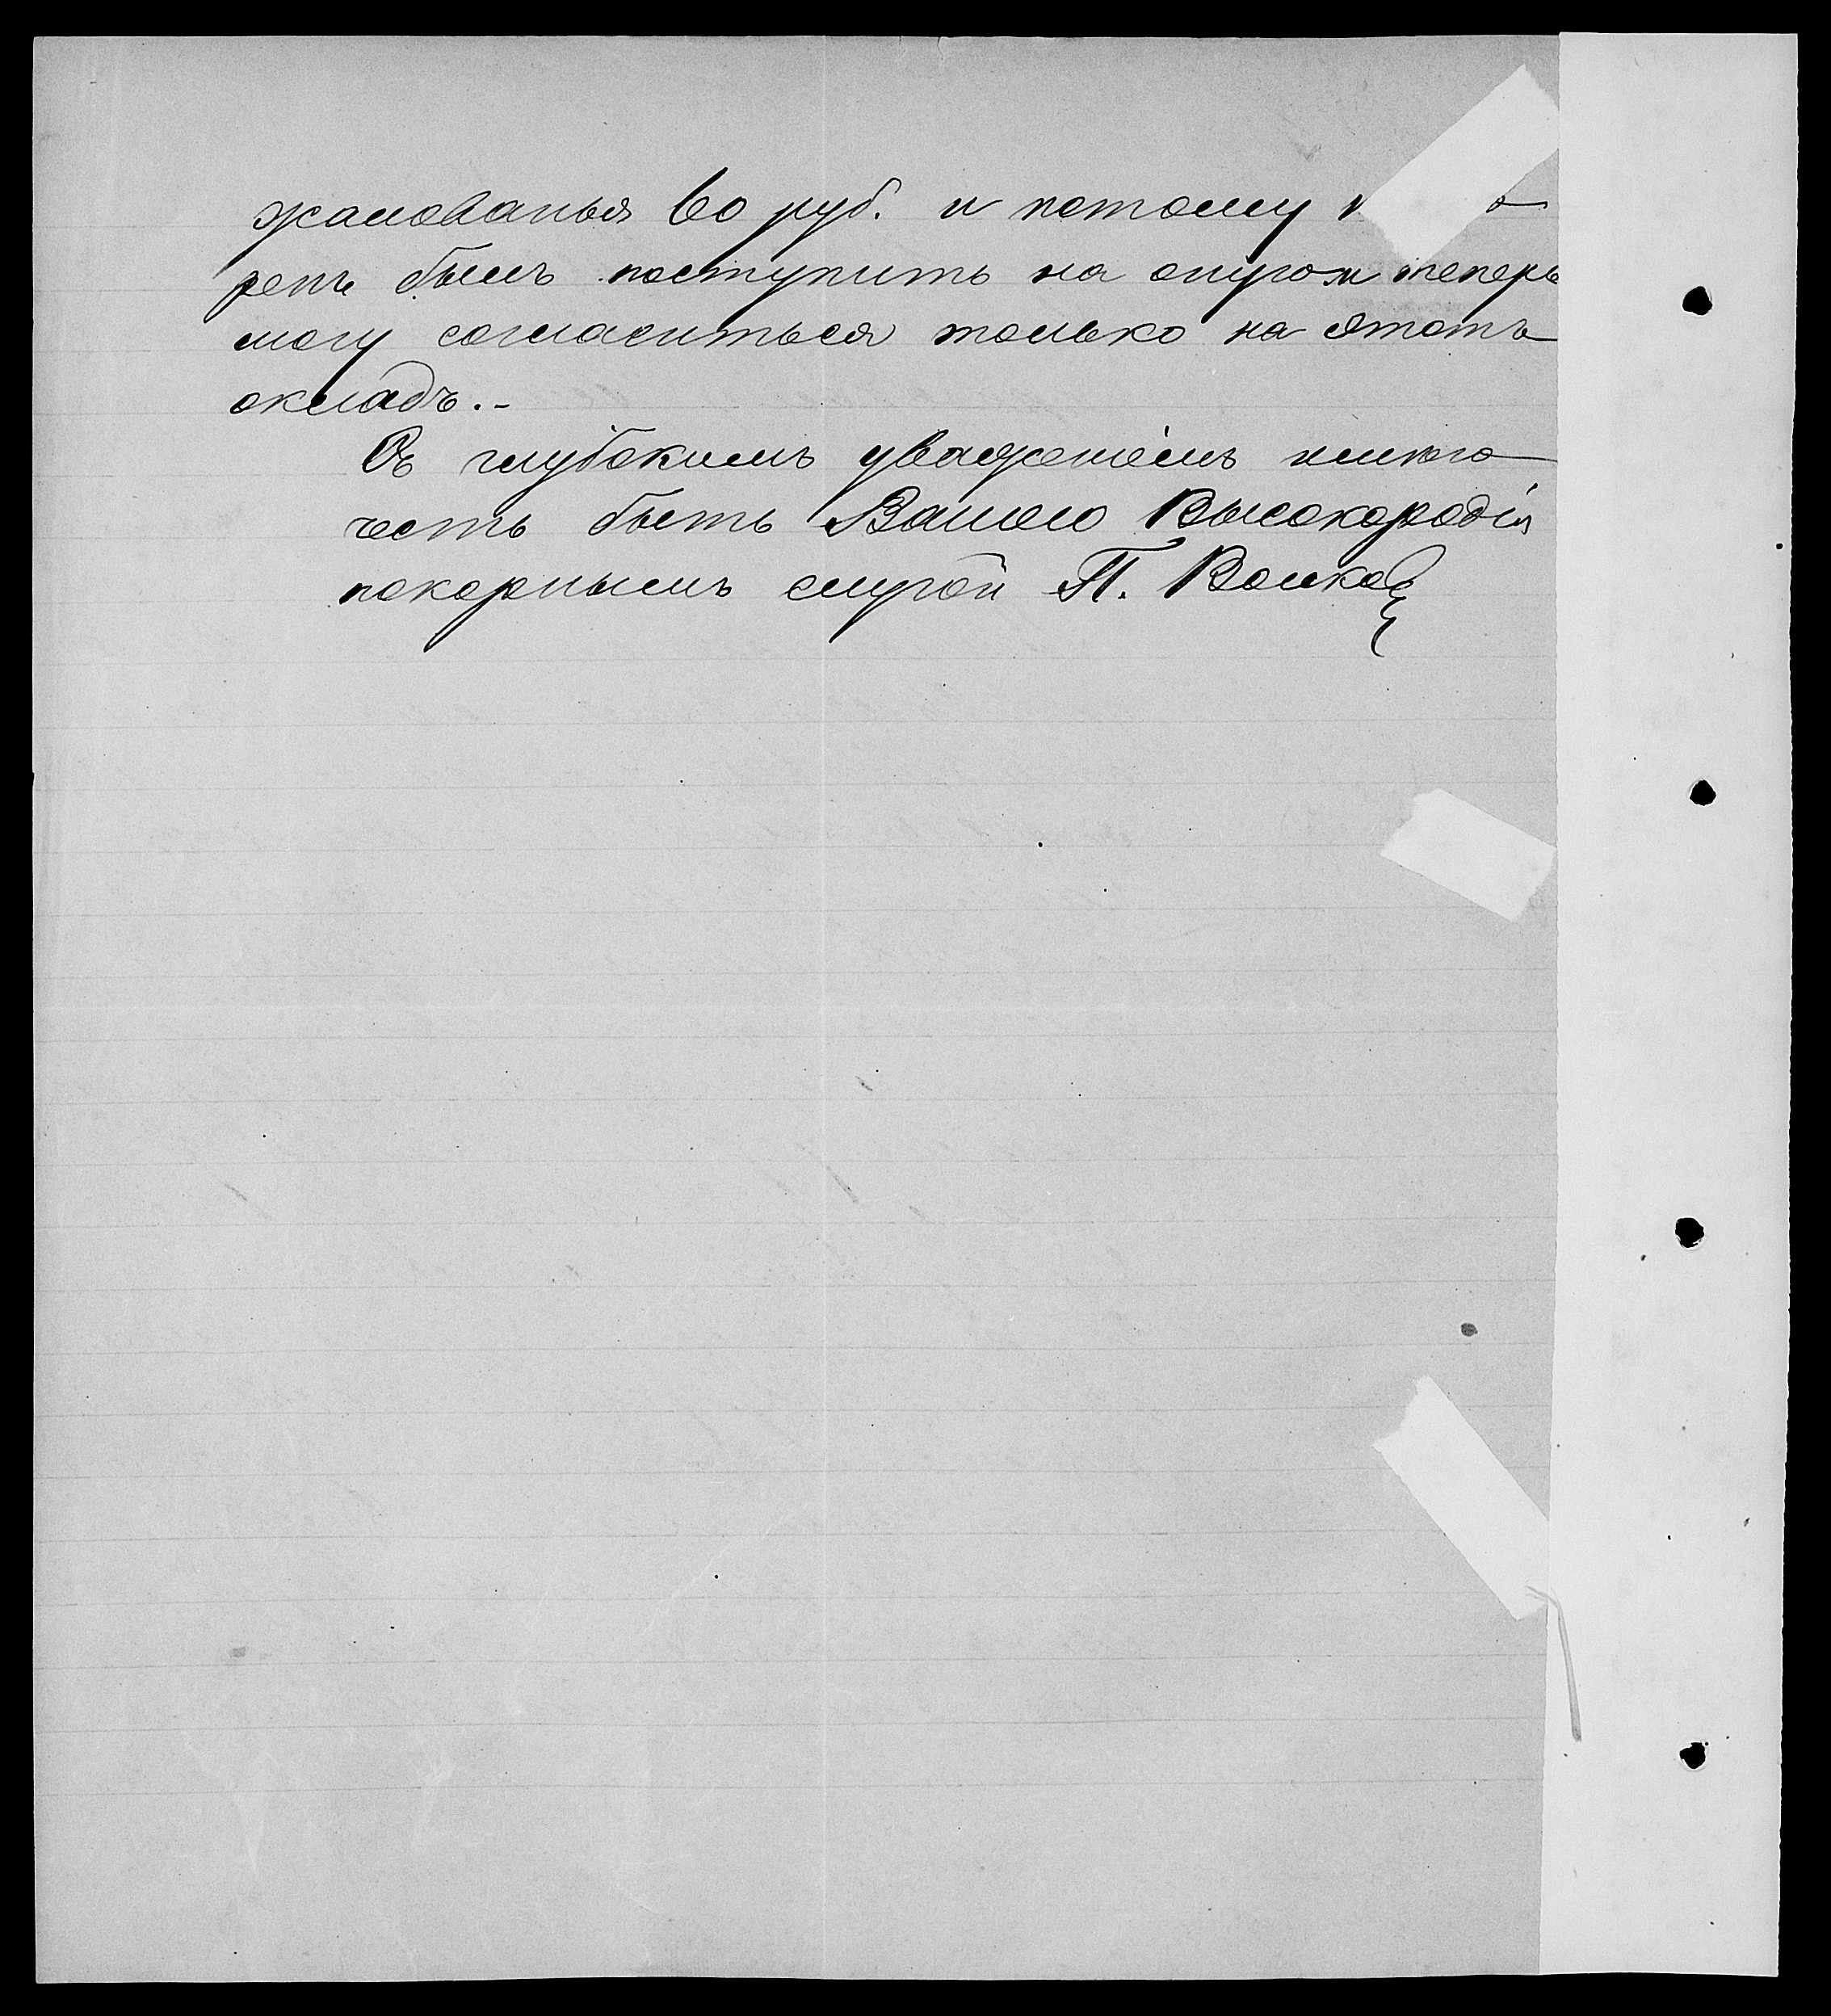 жалованья 60 руб. и потому
ренъ былъ поступить на службу теперь
могу согласиться только на этотъ
окладъ.-
Съ глубокимъ уваженіемъ имѣю
честь быть Вашего Высокородія
покорнымъ слугой П. Волковъ